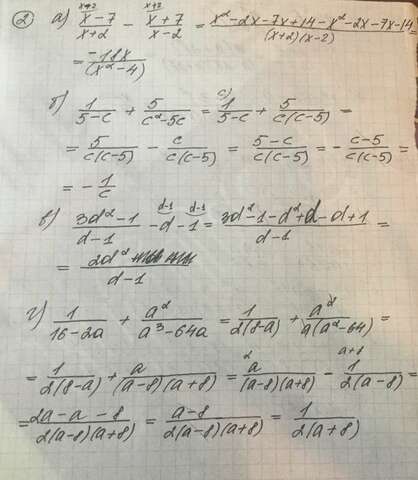 2 а) x-7/x+2 - x+7/x-2 = x²-2x-7x+14-x²-2x-7x-14/(x+2)(x-2) =
= -18x/(x²-4)
б) 1/5-c + 5/c²-5c = 1/5-c + 5/c(c-5) =
= 5/c(c-5) - c/c(c-5) = 5-c/c(c-5) = - c-5/c(c-5) =
= - 1/c
в) 3d²-1/d-1 - d - 1 = 3d²-1-d²+d-d+1/d-1 =
= 2d²/d-1
г) 1/16-2a + a²/a³-64a = 1/2(8-a) + a²/a(a²-64) =
= 1/2(8-a) + a/(a-8)(a+8) = a/(a-8)(a+8) - 1/2(a-8) =
= 2a-a-8/2(a-8)(a+8) = a-8/2(a-8)(a+8) = 1/2(a+8)